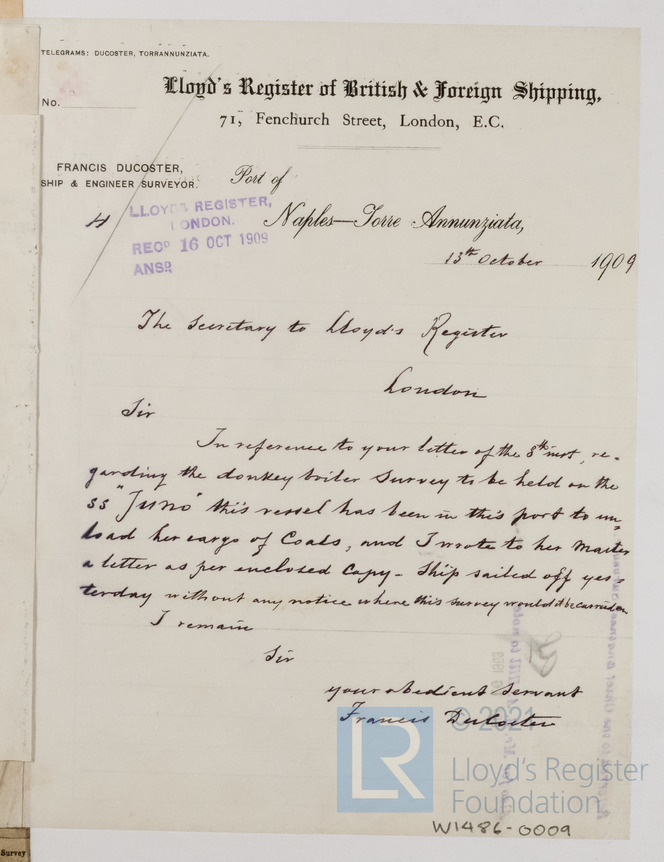 TELEGRAMS: DUCOSTER, TORRANNUNZIATA.
Lloyd's Register of British & Foreign Shipping,
No.
71, Fenchurch Street, London, E.C.
FRANCIS DUCOSTER,
SHIP & ENGINEER SURVEYOR.
Port of
4
LLOYD'S REGISTER,
LONDON.
RECD 16 OCT 1909
ANSD
Naples—Torre Annunziata,
13th October 1909
The Secretary to Lloyd's Register
London
Sir
In reference to your letter of the 8th inst, re-
garding the donkey boiler survey to be held on the
ss "Juno" this vessel has been in this port to un-
load her cargo of Coals, and I wrote to her Master
a letter as per enclosed Copy - Ship sailed off yes-
terday without any notice where this survey would be carried on
I remain
Sir
your obedient servant
Francis DuCoster
© 2021
LR
Lloyd's Register
Foundation
W1486-0009
Survey